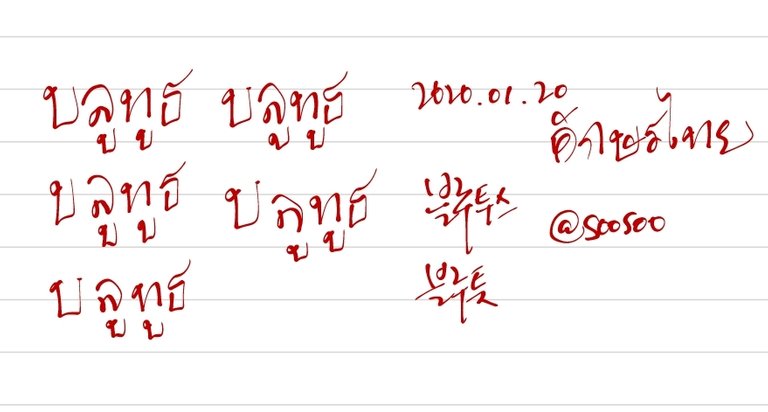 บลูทูธ บลูทูธ 2020.01.20
อักษรไทย
บลูทูธ บลูทูธ 블루투스 @soosoo
บลูทูธ 블루툿